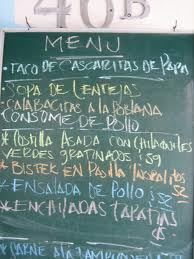 40B
MENU
• TACO DE CASCARITAS DE PAPA
SOPA DE LENTEJAS
CALABACITAS A LA POBLANA
CONSOME DE POLLO
* COSTILLA ASADA CON CHILAQUILES
VERDES GRATINADOS $59
* BISTEK EN PASILLA
* ENSALADA DE POLLO $52
* ENCHILADAS TAPATIAS
CARNE A LA TAMPIQUEÑA